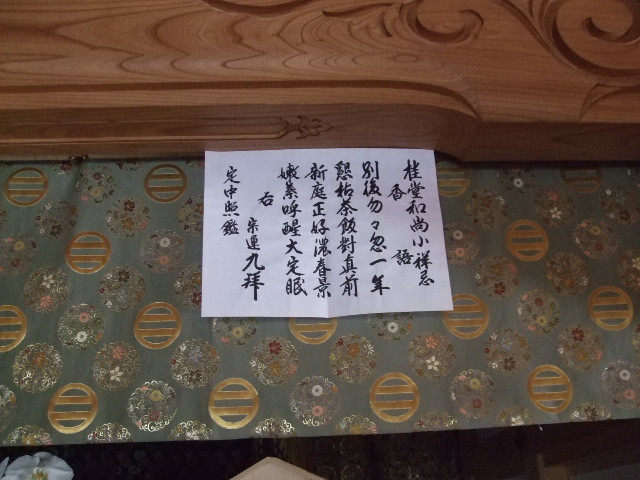 桂堂和尚小祥忌
香語
別後匆々忽一年
懇拈茶飯對真前
新庭正好濃春景
嫩葉呼醒大定眠
右
宗連九拜
定中照鑑